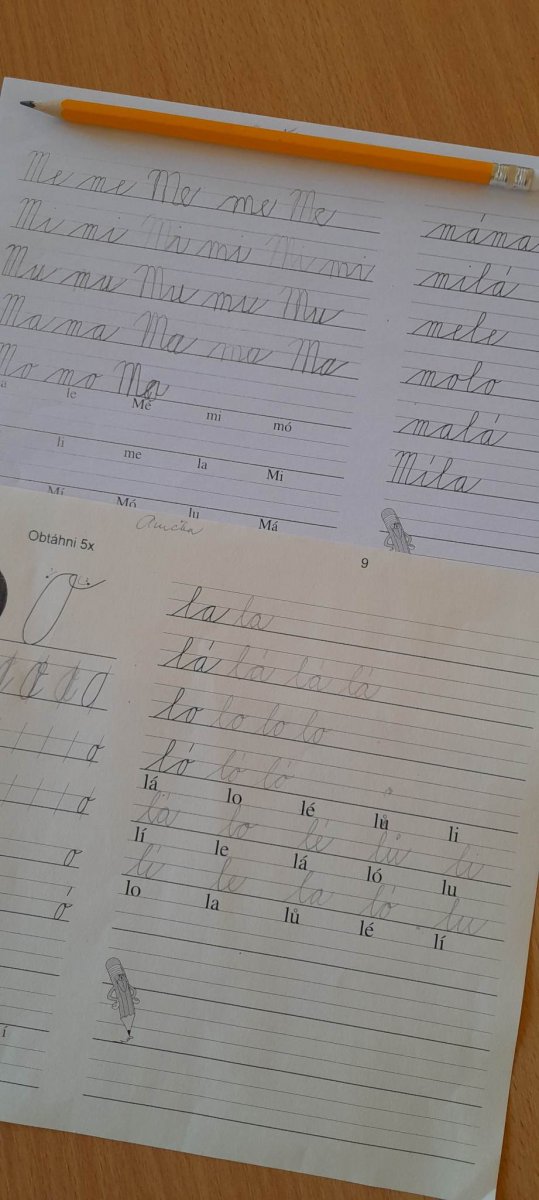 Me me Me me Me
Mi mi Mi mi Mi mi
Mu mu Mu mu Mu
Ma ma Ma ma Ma
Mo mo Mo
le Mé mi mó
li me la Mi
Mí Mó lu Má
máma
milá
mele
molo
malá
Míla
Obtáhni 5x
9
O
o
o
o
ó
í
la la
lá lá lá lá
lo lo lo lo
ló ló ló
lá lo lé lů li
lá lo lé lů li
lí le lá ló lu
lí le la ló lu
lo la lů lé lí